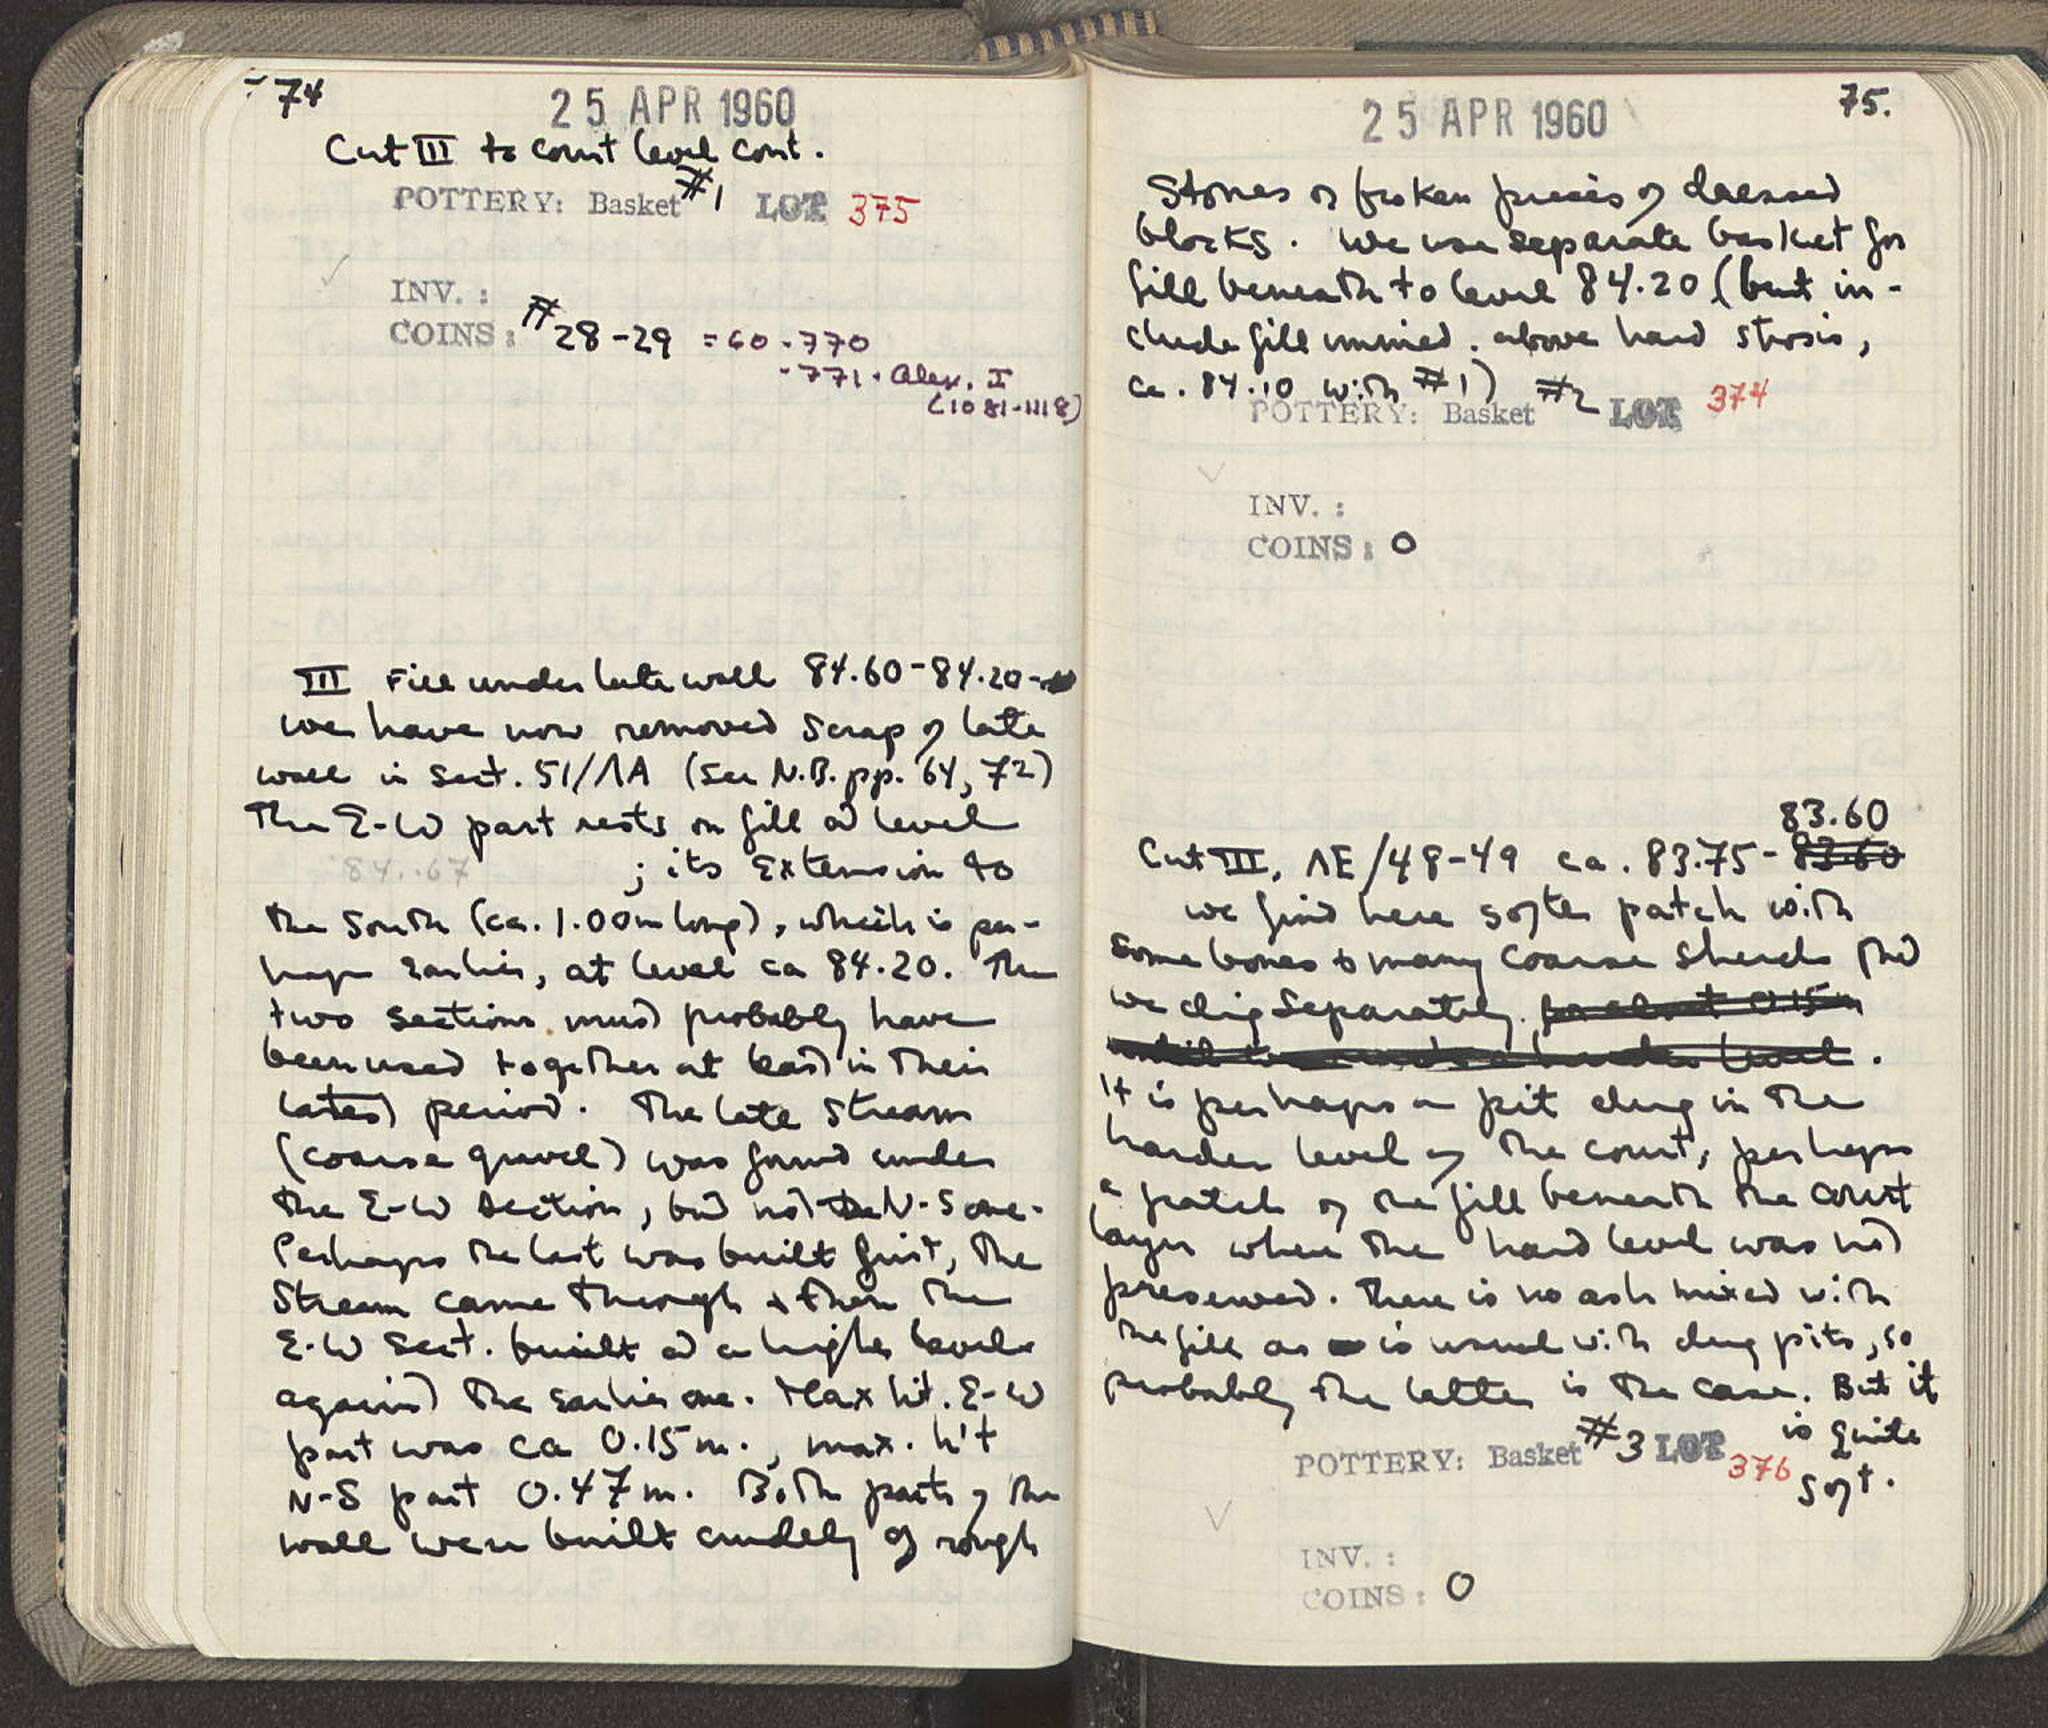 74
25 APR 1960
Cut III to court level cont.
POTTERY: Basket #1 LOT 375
INV. :
COINS: #28-29 = 60-770
-771. Alex. I
(1081-1118)
III Fill under late wall 84.60-84.20
We have now removed scrap of late
wall in Sect. 51/ΛA (See N.B. pp. 64, 72)
The E-W part rests on fill at level
84.67 ; its extension to
the South (ca. 1.00m long), which is per-
haps earlier, at level ca 84.20. The
two sections must probably have
been used together at least in their
latest period. The late stream
(coarse gravel) was found under
the E-W section, but not the N-S one.
Perhaps the last was built first, the
stream came through & then the
E-W Sect. built at a higher level
against the earlier one. Max ht. E-W
part was ca 0.15 m., max. h't
N-S part 0.47 m. Both parts of the
wall were built crudely of rough
75.
25 APR 1960
Stones or broken pieces of dressed
blocks. We use separate basket for
fill beneath to level 84.20 (but in-
clude fill immed. above hard strosis,
ca. 84.10 with #1) #2
POTTERY: Basket LOT 374
INV. :
COINS: 0
83.60
Cut III, ΛE/48-49 ca. 83.75 - 83.60
we find here softer patch with
some bones & many coarse sherds that
we dig separately. for about 0.15m
.
It is perhaps a pit dug in the
harder level of the court, perhaps
a patch of the fill beneath the court
layer where the hard level was not
preserved. There is no ash mixed with
the fill as is usual with dug pits, so
probably the latter is the case. But it
is quite
soft.
POTTERY: Basket #3 LOT 376
INV. :
COINS: 0